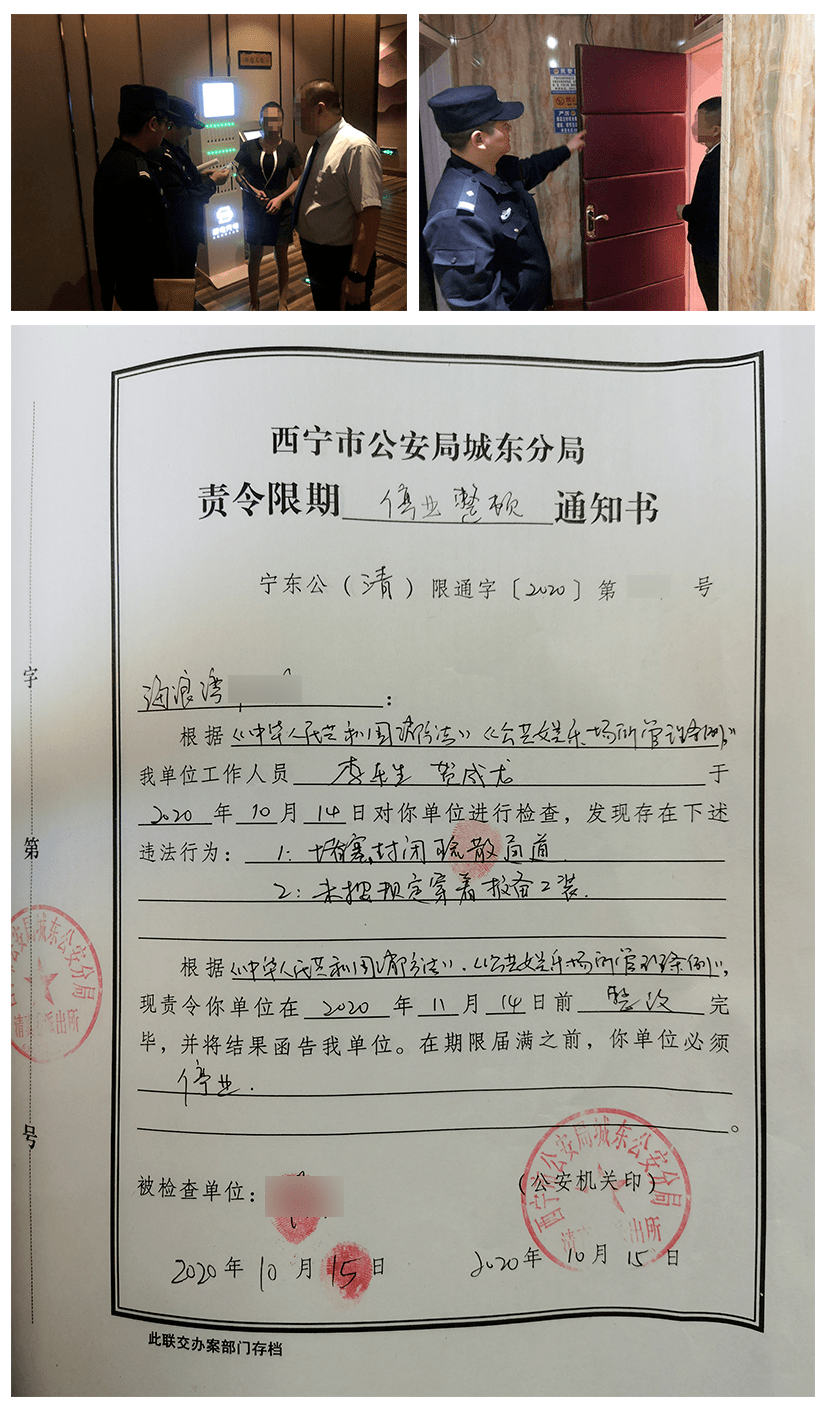 西宁市公安局城东分局
责令限期 停业整顿 通知书
宁东公（清）限通字〔2020〕第 号
海浪湾 ：
根据《中华人民共和国消防法》《公共娱乐场所管理条例》，
我单位工作人员 于
2020 年 10 月 14 日对你单位进行检查，发现存在下述
违法行为： 1：堵塞，封闭疏散通道
2：未按规定穿着报备工装．
根据《中华人民共和国消防法》．《公共娱乐场所管理条例》，
现责令你单位在 2020 年 11 月 14 日前 整改 完
毕，并将结果函告我单位。在期限届满之前，你单位必须
停业．
。
字
第
号
西宁市公安局城东公安分局
派出所
被检查单位：
（公安机关印）
2020 年 10 月 15 日
2020 年 10 月 15 日
此联交办案部门存档